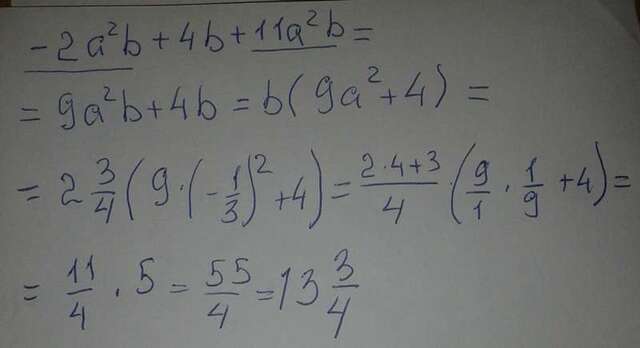 -2a²b + 4b + 11a²b =
= 9a²b + 4b = b(9a² + 4) =
= 2 3/4 (9 · (-1/3)² + 4) = (2·4+3)/4 · (9/1 · 1/9 + 4) =
= 11/4 · 5 = 55/4 = 13 3/4